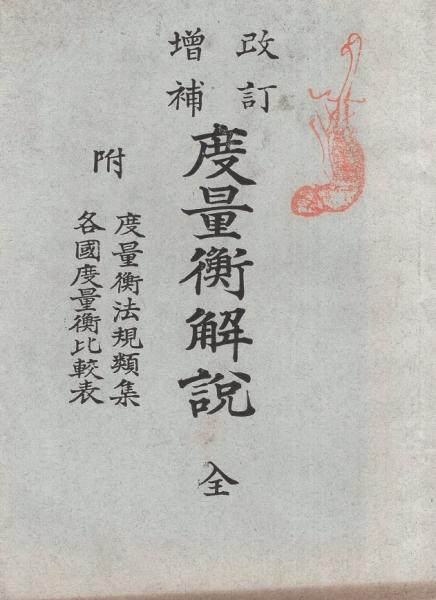 改訂
增補
度量衡解說 全
附
度量衡法規類集
各國度量衡比較表